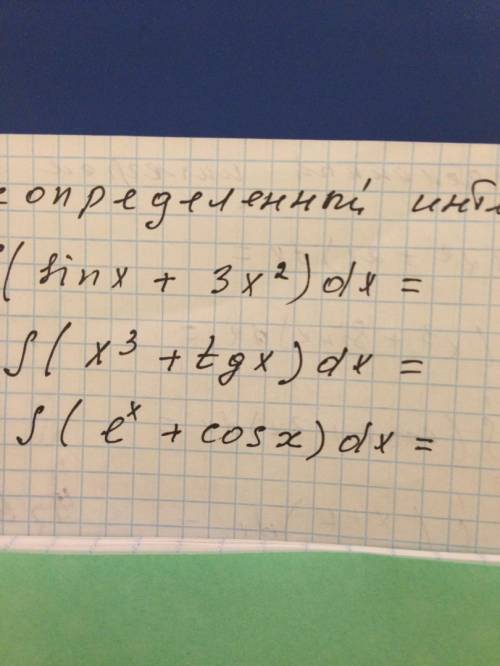 определенный
∫(sinx + 3x²)dx =
∫(x³ + tgx)dx =
∫(eˣ + cosx)dx =